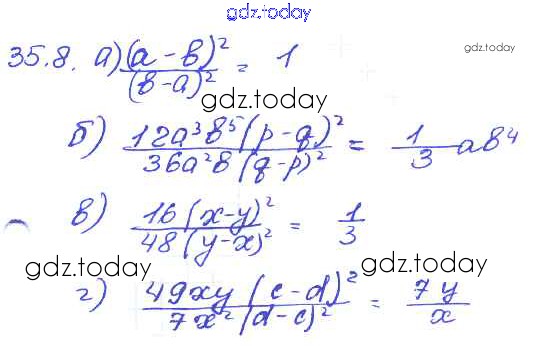 gdz.today
35.8. а) (a - b)² / (b - a)² = 1
gdz.today
gdz.today
б) 12a³b⁵(p - q)² / 36a²b(q - p)² = 1/3 ab⁴
в) 16(x-y)² / 48(y-x)² = 1/3
gdz.today
gdz.today
г) 49xy(c-d)² / 7x²(d-c)² = 7y/x